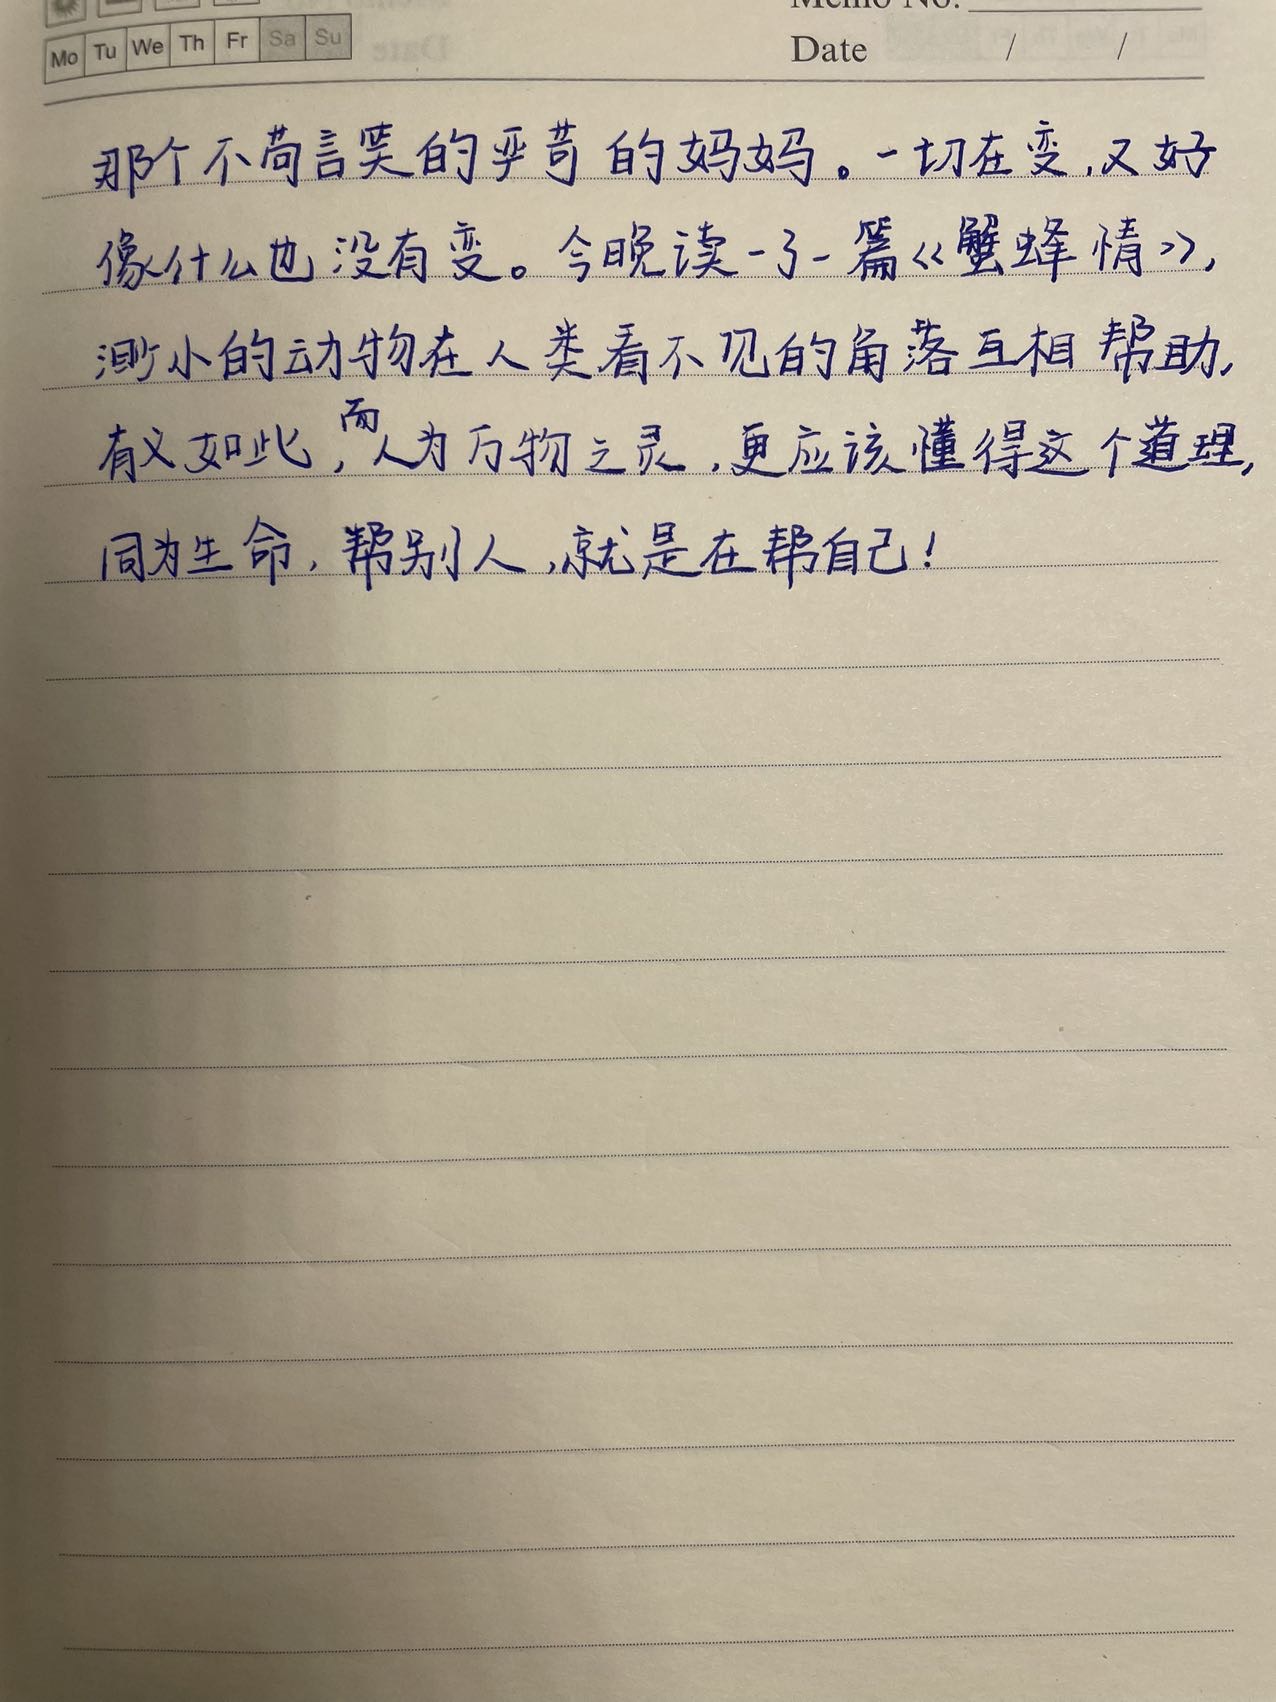 Memo No.
Mo Tu We Th Fr Sa Su
Date / /
那个不苟言笑的严苛的妈妈。一切在变，又好
像什么也没有变。今晚读一了一篇《蟹蜂情》，
渺小的动物在人类看不见的角落互相帮助，
有义如此，而人为万物之灵，更应该懂得这个道理，
同为生命，帮别人，就是在帮自己！